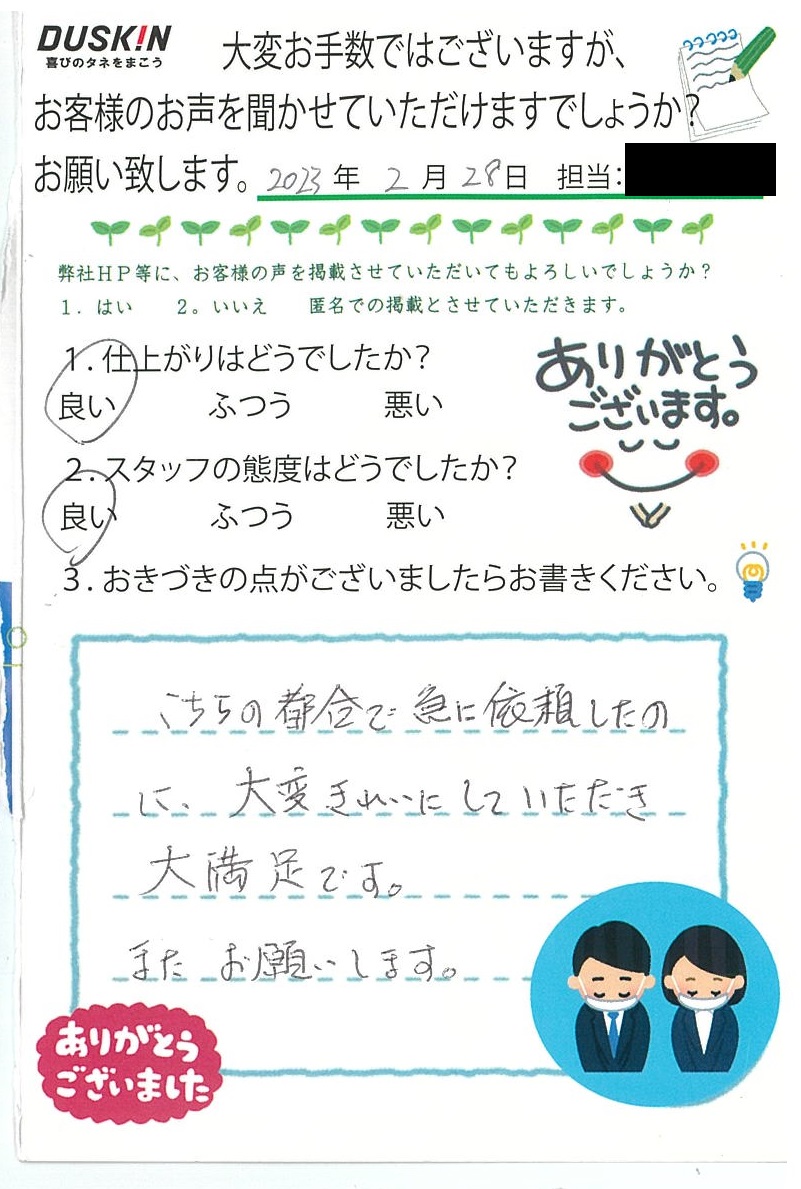 DUSK!N
喜びのタネをまこう
大変お手数ではございますが、
お客様のお声を聞かせていただけますでしょうか？
お願い致します。 2023年 2月 28日 担当：
弊社ＨＰ等に、お客様の声を掲載させていただいてもよろしいでしょうか？
１．はい ２。いいえ 匿名での掲載とさせていただきます。
１．仕上がりはどうでしたか？
良い ふつう 悪い
ありがとう
ございます。
２．スタッフの態度はどうでしたか？
良い ふつう 悪い
３．おきづきの点がございましたらお書きください。
こちらの都合で急に依頼したの
に、大変きれいにしていただき
大満足です。
また お願いします。
ありがとう
ございました